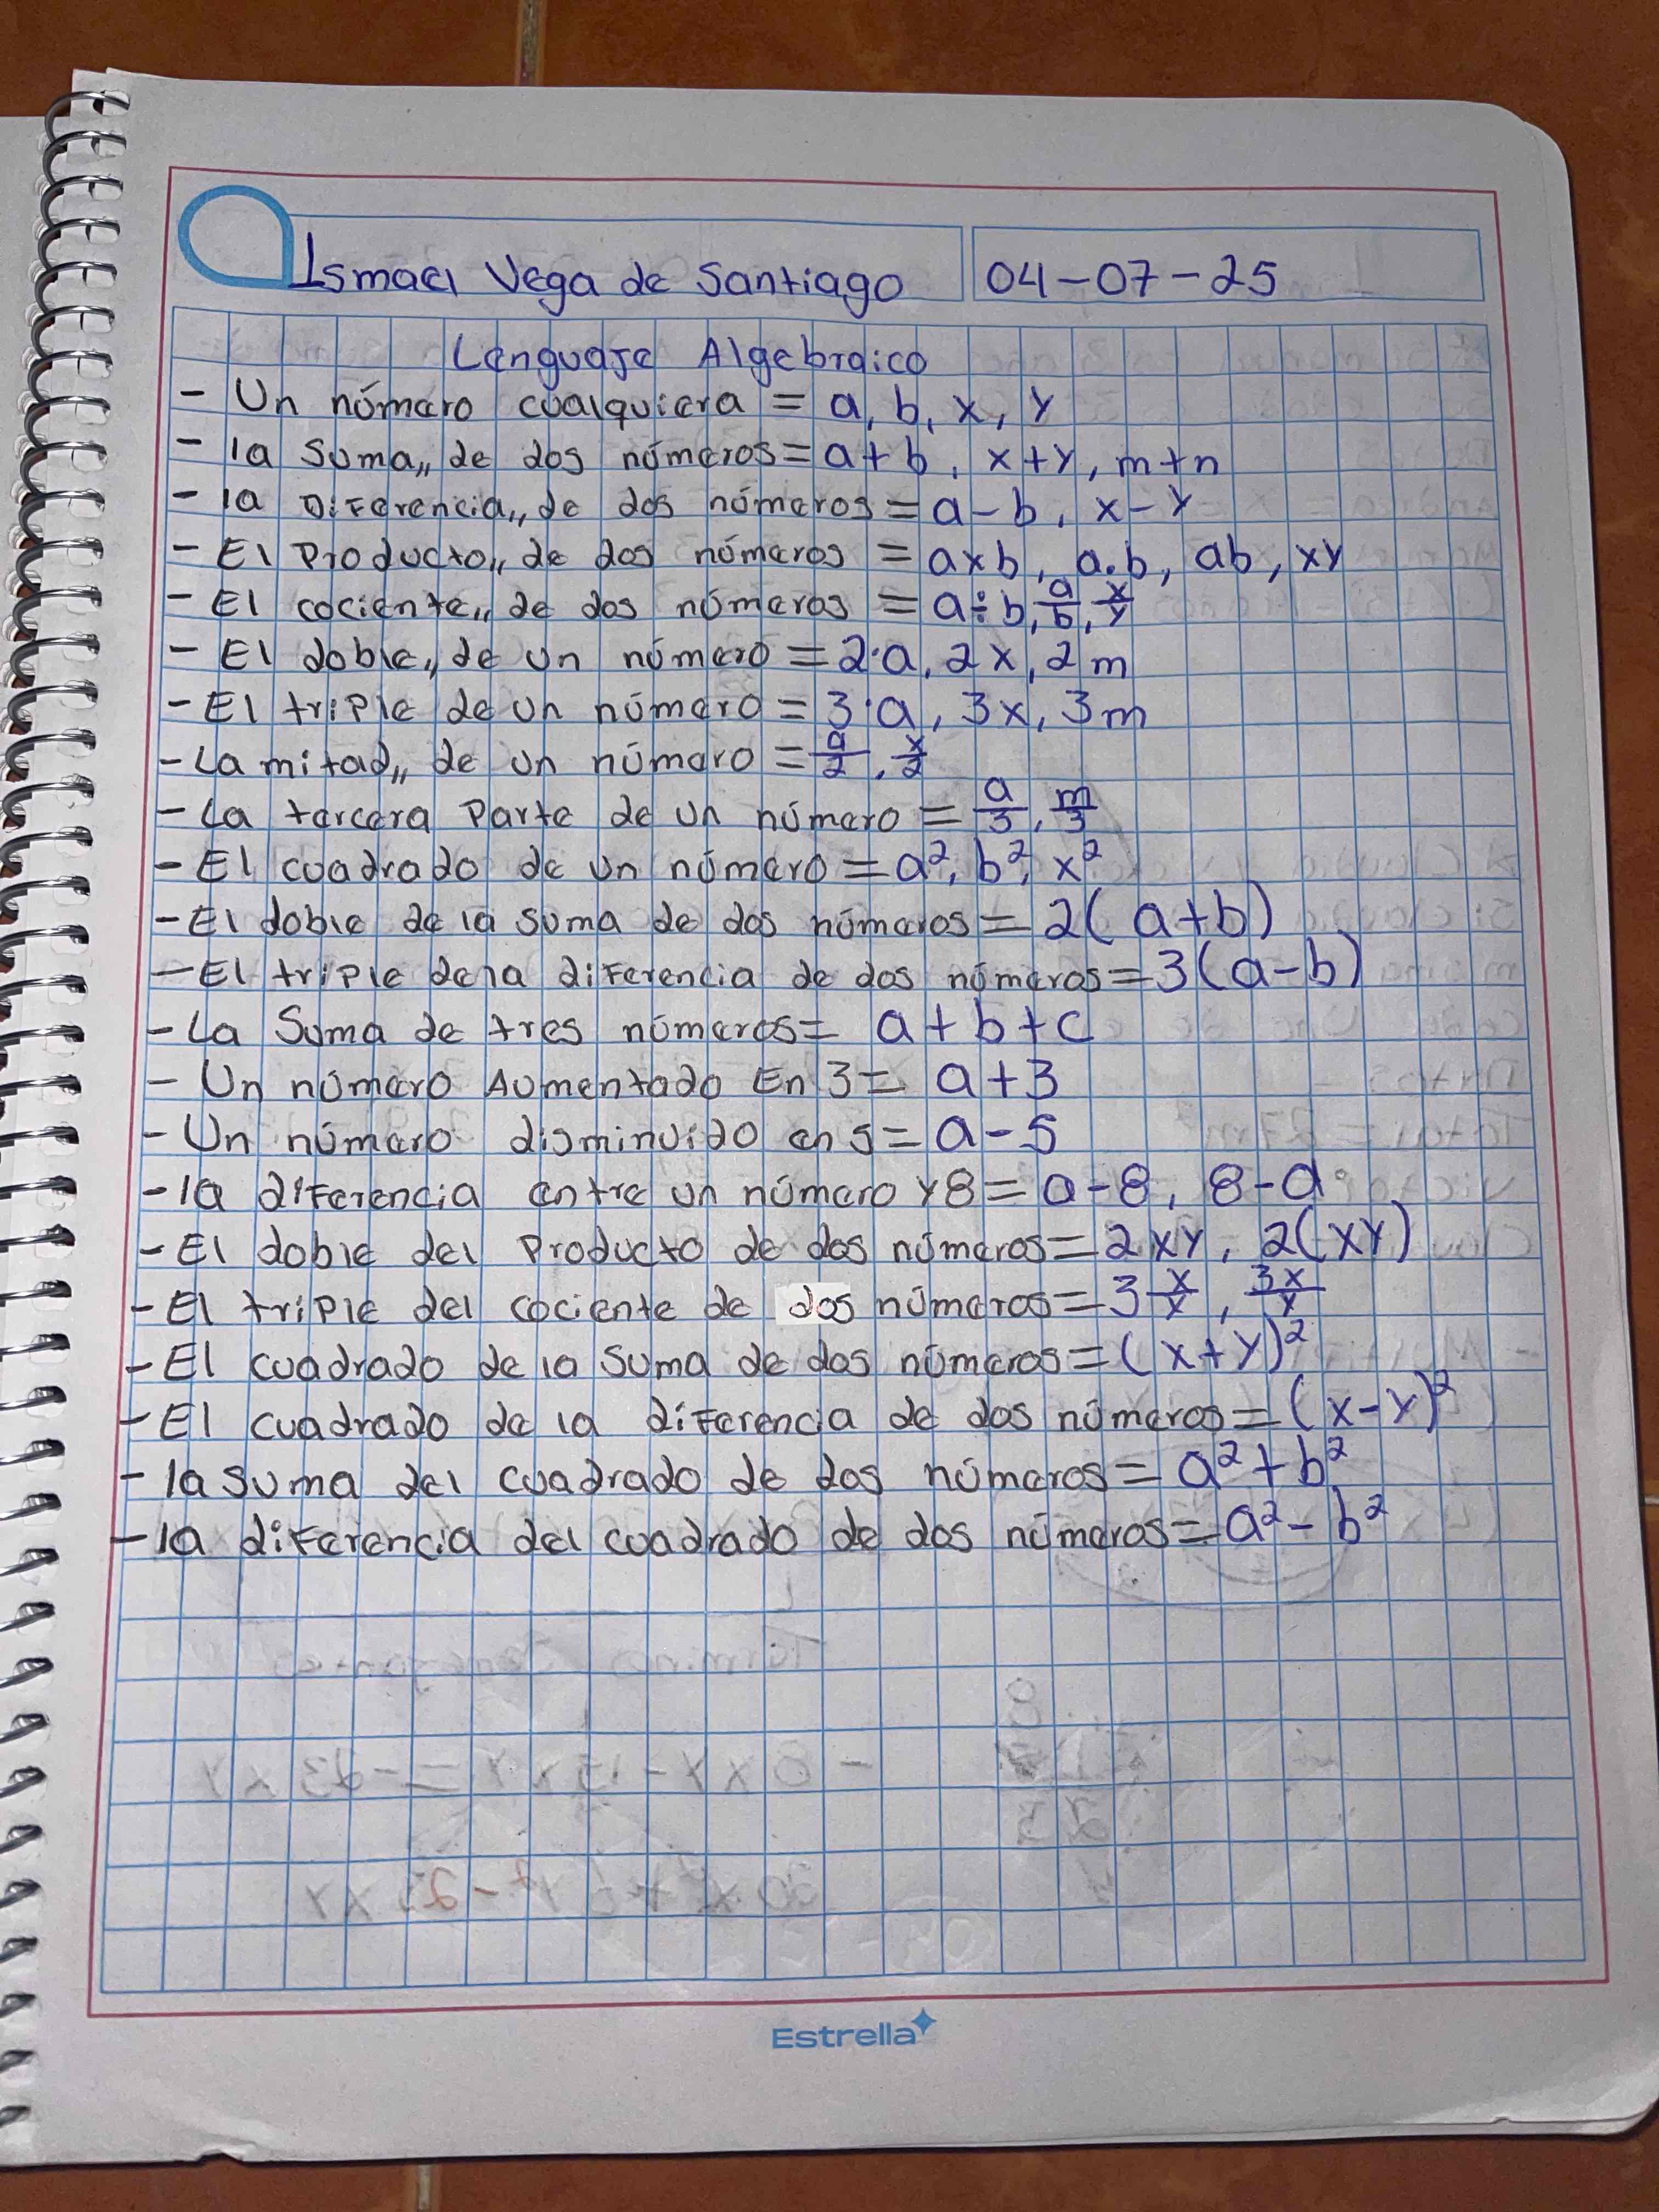 Ismael Vega de Santiago
04-07-25
Lenguaje Algebraico
- Un número cualquiera = a, b, x, y
- la suma,, de dos números = a+b, x+y, m+n
- la Diferencia,, de dos números = a-b, x-y
- El Producto,, de dos números = axb, a.b, ab, xy
- El cociente,, de dos números = a÷b, a/b, x/y
- El doble,, de un número = 2·a, 2x, 2m
- El triple de un número = 3·a, 3x, 3m
- La mitad,, de un número = a/2, x/2
- La tercera Parte de un número = a/3, m/3
- El cuadrado de un número = a², b², x²
- El doble de la suma de dos números = 2(a+b)
- El triple de la diferencia de dos números = 3(a-b)
- La Suma de tres números = a+b+c
- Un número Aumentado En 3 = a+3
- Un número disminuido en 5 = a-5
- la diferencia entre un número y 8 = a-8, 8-a
- El doble del Producto de dos números = 2xy, 2(xy)
- El triple del cociente de dos números = 3 x/y, 3x/y
- El cuadrado de la suma de dos números = (x+y)²
- El cuadrado de la diferencia de dos números = (x-y)²
- la suma del cuadrado de dos números = a²+b²
- la diferencia del cuadrado de dos números = a²-b²
Estrella